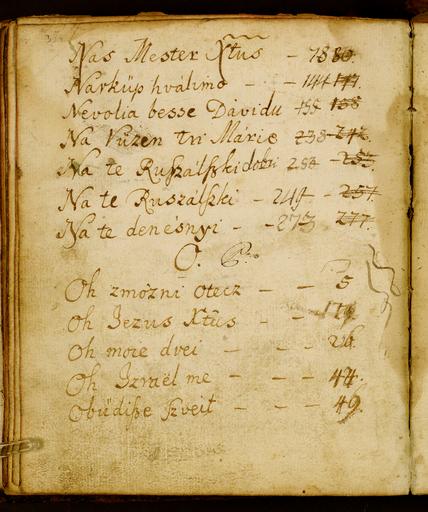 Nas Mester Xtus - 78 80.
Narküp hválimo - - 144 141.
Nevolia besse Dávidu 155 158
Na Vüzen tri Márie 238 242.
Na te Rusʒálſzki dobi 250 - 253.
Na te Rusʒálſzki - 249 - 257.
Na te denésnyi - - 273 277.
O.
Oh zmozni otecz - - 5
Oh Jezus Xtus - - 179.
Oh moie drei - - - 26.
Oh Izraël me - - - 44.
Obüdiſze ſzveit - - - 49.